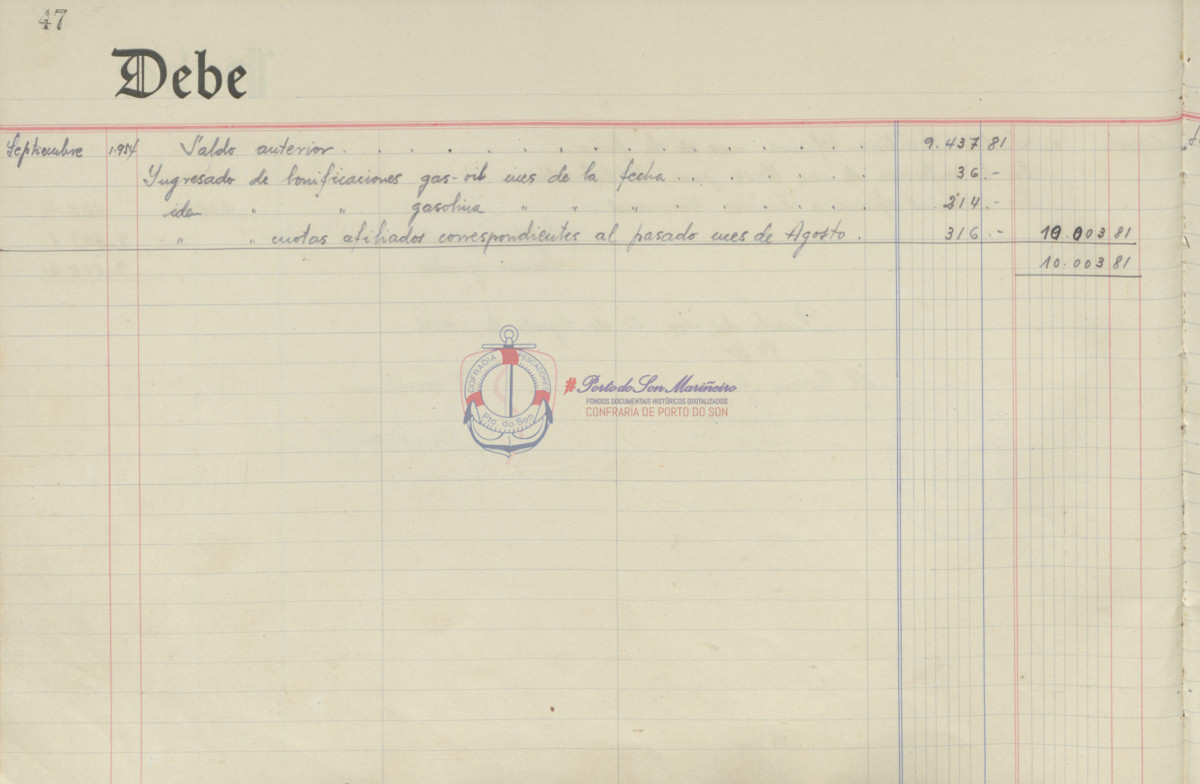 47
Debe
Septiembre 1.954 Saldo anterior . . . . . . . . . . . . . . . . . 9.437 81
Ingresado de bonificaciones gas-oil mes de la fecha . . . . . . . 36.-
iden " " gasolina " " " . . . . . . . 214.-
" " cuotas afiliados correspondientes al pasado mes de Agosto . 316.- 10.003 81
10.003 81
COFRADIA PESCADORES
Pto. do Son
#Porto do Son Mariñeiro
FONDOS DOCUMENTAIS HISTÓRICOS DIXITALIZADOS
CONFRARÍA DE PORTO DO SON